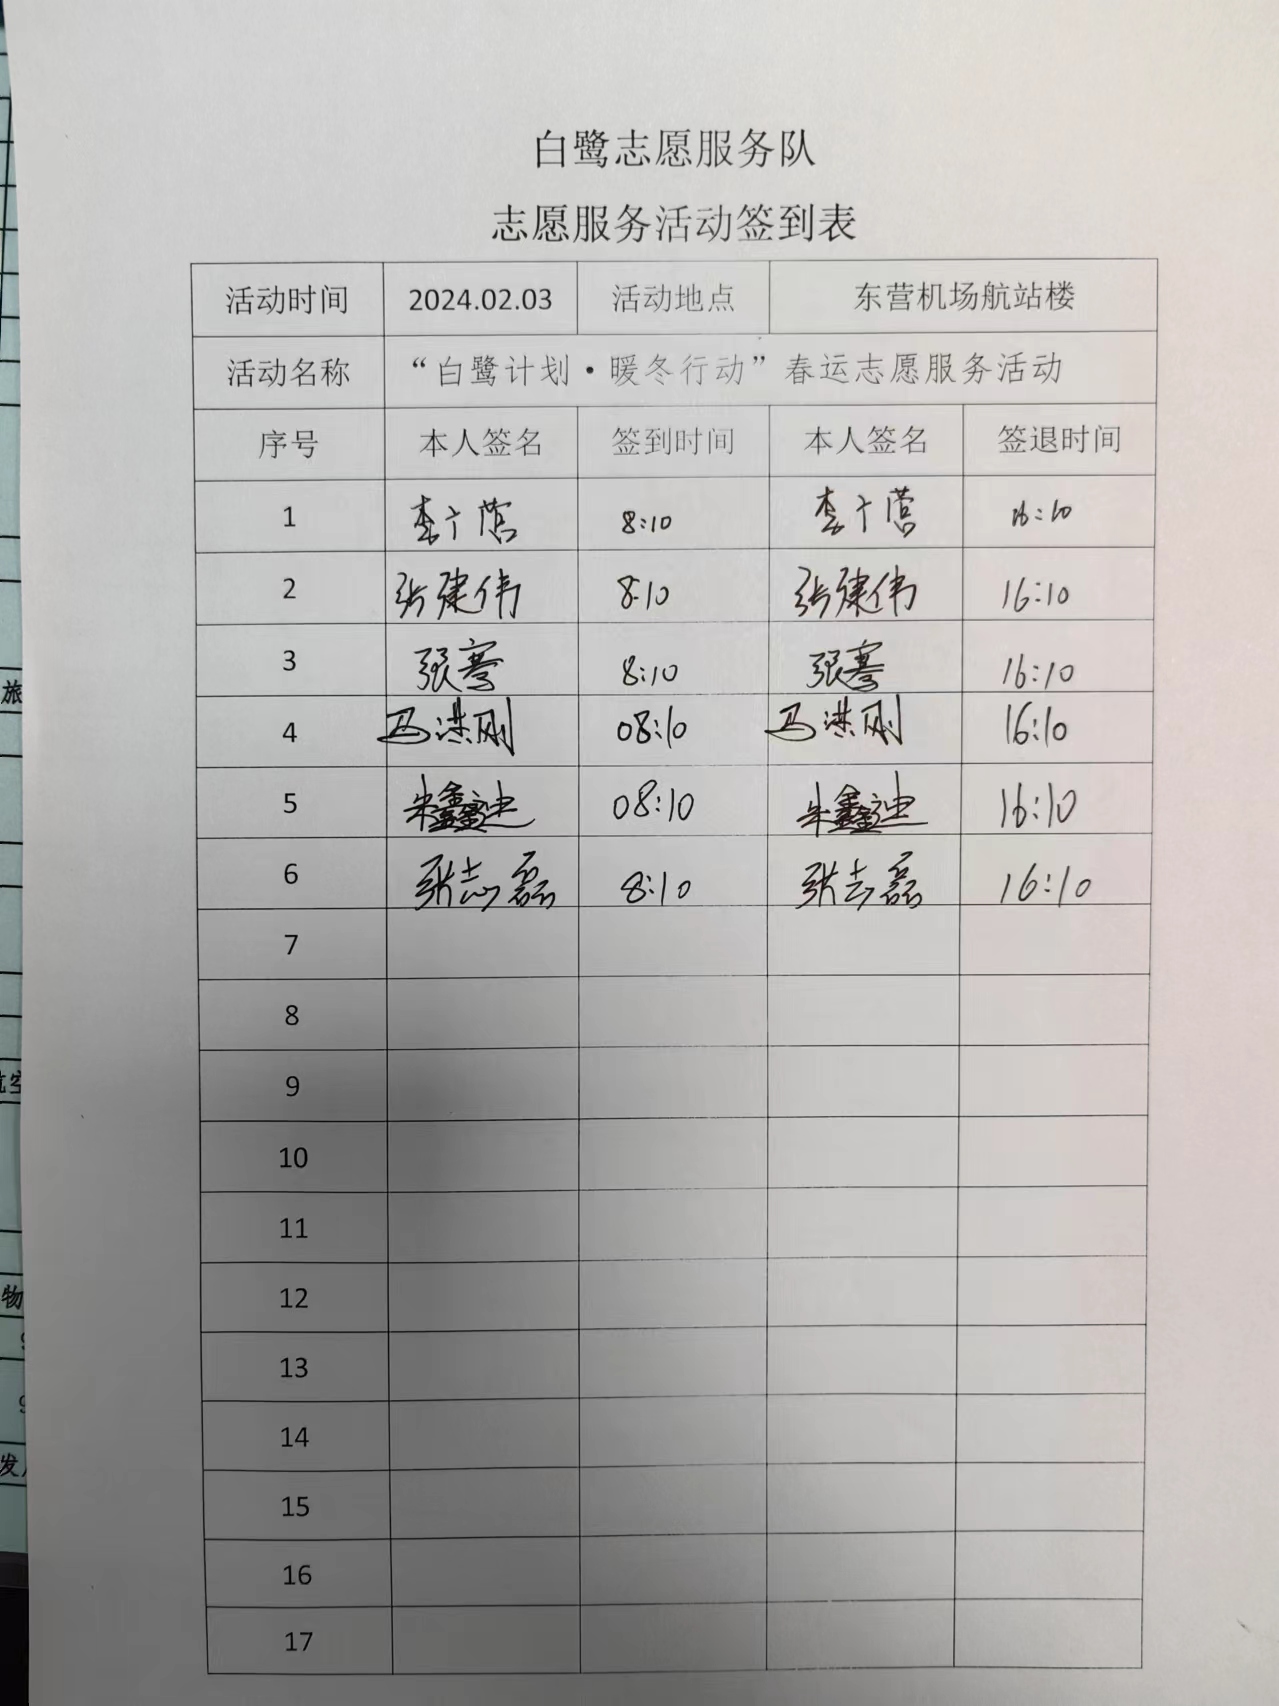 白鹭志愿服务队
志愿服务活动签到表
活动时间 2024.02.03 活动地点 东营机场航站楼
活动名称 “白鹭计划·暖冬行动”春运志愿服务活动
序号 本人签名 签到时间 本人签名 签退时间
1 李广营 8:10 李广营 16:10
2 张建伟 8:10 张建伟 16:10
3 张骞 8:10 张骞 16:10
4 马洪刚 08:10 马洪刚 16:10
5 朱鑫迪 08:10 朱鑫迪 16:10
6 张志磊 8:10 张志磊 16:10
7
8
9
10
11
12
13
14
15
16
17
旅
物
发